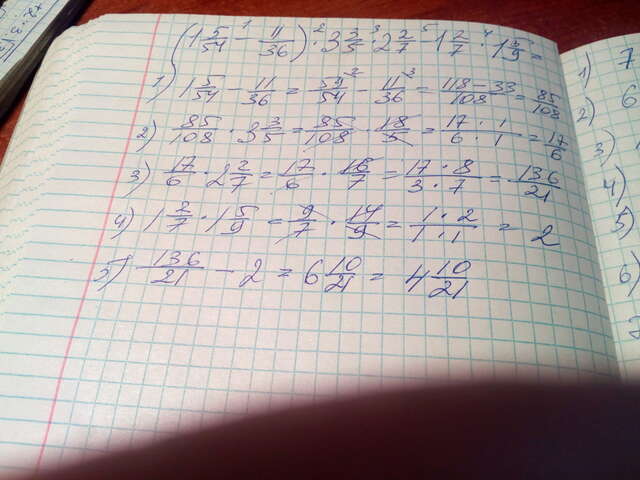 (1 5/54 - 11/36) · 3 3/5 · 2 2/7 - 1 2/7 · 1 5/9 =
1) 1 5/54 - 11/36 = 59/54 - 11/36 = 118-33/108 = 85/108
2) 85/108 · 3 3/5 = 85/108 · 18/5 = 17·1/6·1 = 17/6
3) 17/6 · 2 2/7 = 17/6 · 16/7 = 17·8/3·7 = 136/21
4) 1 2/7 · 1 5/9 = 9/7 · 14/9 = 1·2/1·1 = 2
5) 136/21 - 2 = 6 10/21 = 4 10/21
1) 7
2) 6
3)
4)
5)
6)